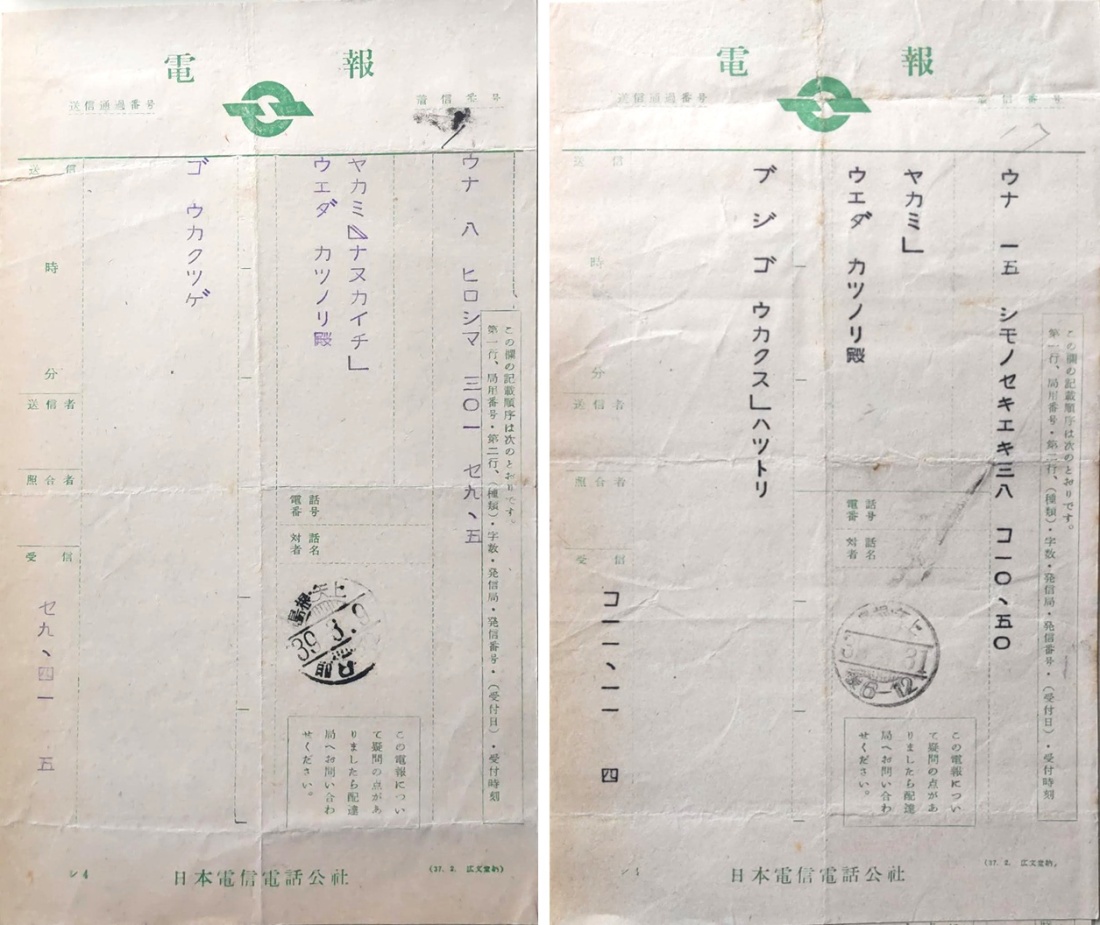 電報
送信通過番号
着信番号
ウナ 八 ヒロシマ 三〇一 セ九、五
この欄の記載順序は次のとおりです。
第一行、局用番号・第二行、(種類)・字数・発信局・発信番号・(受付日)・受付時刻
ヤカミ
ナヌカイチ」
ウエダ カツノリ殿
ゴ ウカクツゲ
送信
時
分
送信者
照合者
受信
セ九、四一 五
電話番号
対話者名
島根・矢上
39
この電報につい
て疑問の点があ
りましたら配達
局へお問い合わ
せください。
シ4
日本電信電話公社
(37. 2. 広文堂納)
電報
送信通過番号
着信番号
ウナ 一五 シモノセキエキ三八 コ一〇、五〇
この欄の記載順序は次のとおりです。
第一行、局用番号・第二行、(種類)・字数・発信局・発信番号・(受付日)・受付時刻
ヤカミ」
ウエダ カツノリ殿
ブ ジ ゴ ウカクス」ハツトリ
送信
時
分
送信者
照合者
受信
コ一一、一一 四
電話番号
対話者名
31
6-12
この電報につい
て疑問の点があ
りましたら配達
局へお問い合わ
せください。
シ4
日本電信電話公社
(37. 2. 広文堂納)